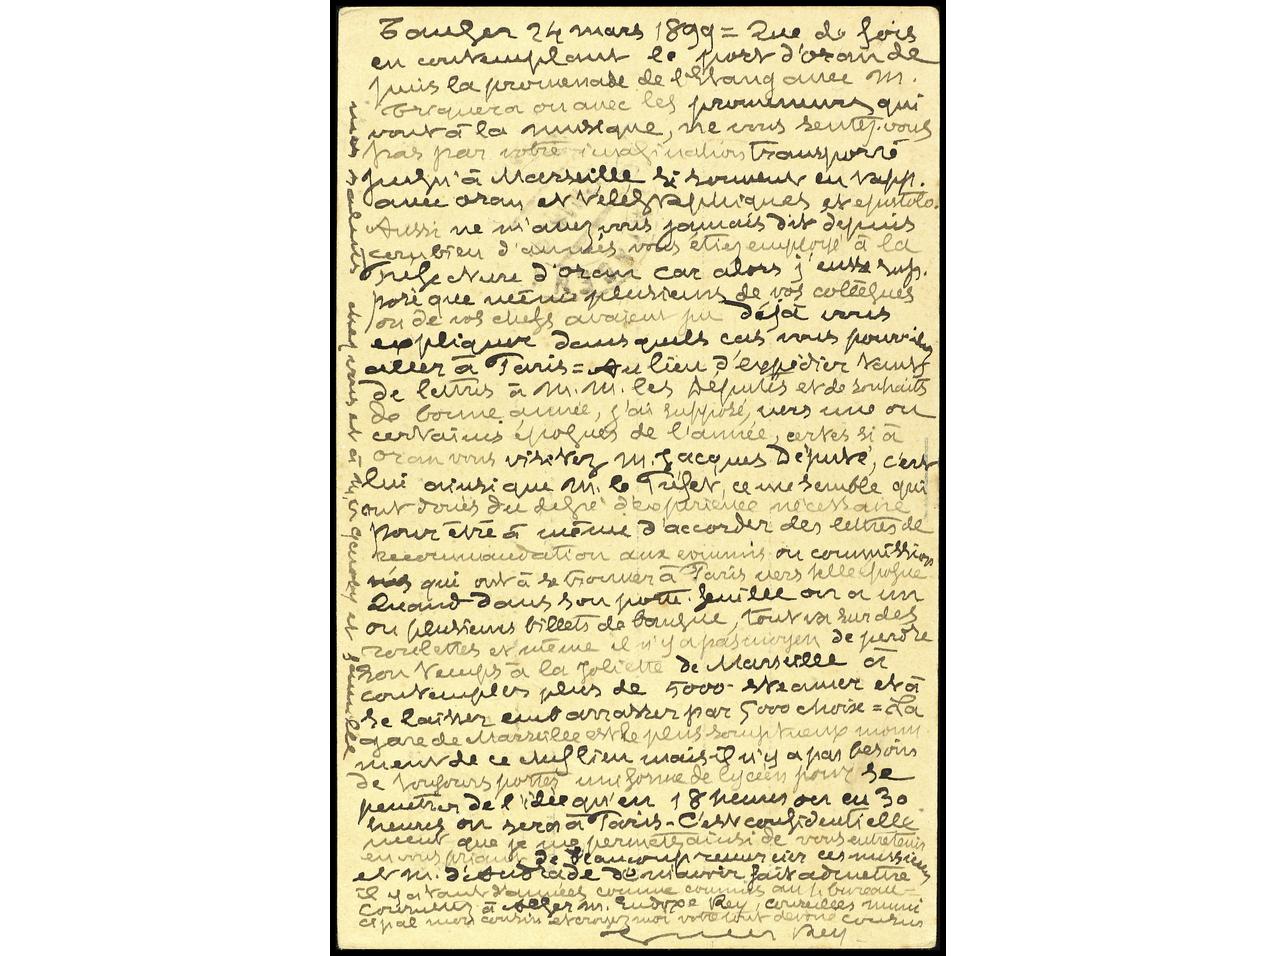 Tanger 24 mars 1899 = Que de fois
en contemplant le port d'oran de
puis la promenade de l'Etang avec M.
ou avec les promeneurs qui
vont à la musique, ne vous sentez-vous
pas par votre imagination transporté
jusqu'à Marseille si souvent en rapp.
avec oran et télégraphiques et épistolo.
Aussi ne m'avez vous jamais dit depuis
combien d'années vous étiez employé à la
Préfecture d'oran car alors j'eusse sup.
posé que même plusieurs de vos collègues
ou de vos chefs avaient pu déjà vous
expliquer dans quels cas vous pourriez
aller à Paris = Au lieu d'expédier tant
de lettres à M.M. les Députés et de souhaits
de bonne année, j'ai supposé, vers une ou
certaines époques de l'année, certes si à
oran vous visitez M. Jacques Député, c'est
lui ainsi que M. le Préfet, ce me semble qui
ont doués du degré d'expérience nécessaire
pour être à même d'accorder des lettres de
recommandation aux commis ou commission
nés qui ont à se trouver à Paris vers telle époque
Quand dans son porte-feuille on a un
ou plusieurs billets de banque, tout va sur des
roulettes et même il n'y a pas moyen de perdre
son temps à la Joliette de Marseille à
contempler plus de 5000 steamer et à
se laisser embarrasser par 5000 choix = La
gare de Marseille est le plus somptueux monu
ment de ce chef lieu mais il n'y a pas besoin
de toujours porter uniforme de lycéen pour se
pénétrer de l'idée qu'en 18 heures ou en 30
heures on sera à Paris - C'est confidentielle
ment que je me permets ainsi de vous entretenir
en vous priant de beaucoup remercier ces messieurs
et M. d'Andrade de m'avoir fait admettre
il y a tant d'années comme commis au bureau =
à Alger M. Eudoxe Rey, conseiller muni
cipal mon cousin et croyez moi votre tout dévoué cousin
Rey
mes saluts chez vous et à et famille